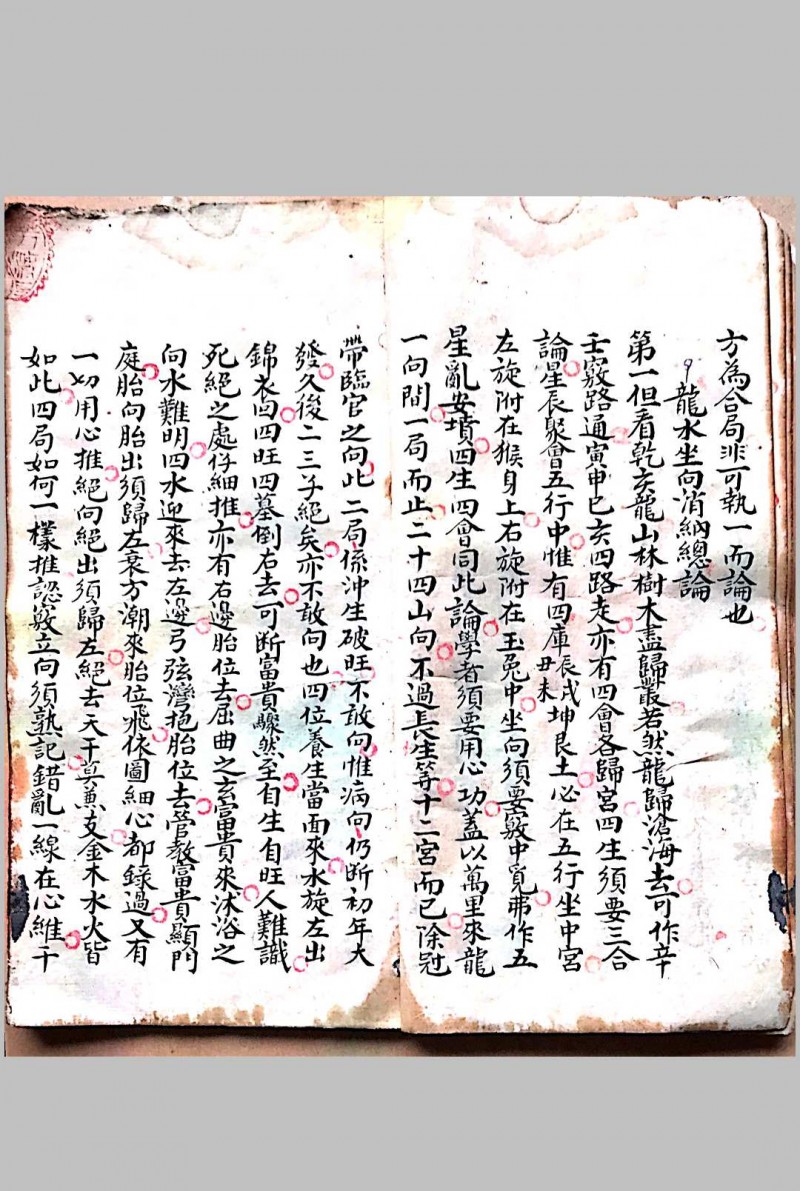 方為合局非可執一而論也
龍水坐向消納總論
第一但看乾亥龍山林樹木盡歸叢若然龍歸滄海去可作辛
壬竅路通寅申巳亥四路走亦有四會各歸宮四生須要三合
論星辰聚會五行中惟有四庫辰戌丑未坤艮土必在五行坐中宮
左旋附在猴身上右旋附在玉兔中坐向須要竅中覓弗作五
星亂安墳四生四會同此論學者須要用心功蓋以萬里來龍
一向間一局而止二十四山向不過長生等十二宮而已除冠
帶臨官之向此二局係沖生破旺不敢向惟病向仍斷初年大
發久後二三子絕矣亦不敢向也四位養生當面來水旋左出
錦衣回四旺四墓倒右去可斷富貴驟然至自生自旺人難識
死絕之處仔細推亦有右邊胎位去屈曲之玄富貴來沐浴之
向水難明四水迎來去左邊弓弦灣抱胎位去管教富貴顯門
庭胎向胎出須歸左衰方潮來胎位飛依圖細心都錄過又有
一切用心推絕向絕出須歸左絕去天干莫兼支金木水火皆
如此四局如何一樣推認竅立向須熟記錯亂一線在心維十